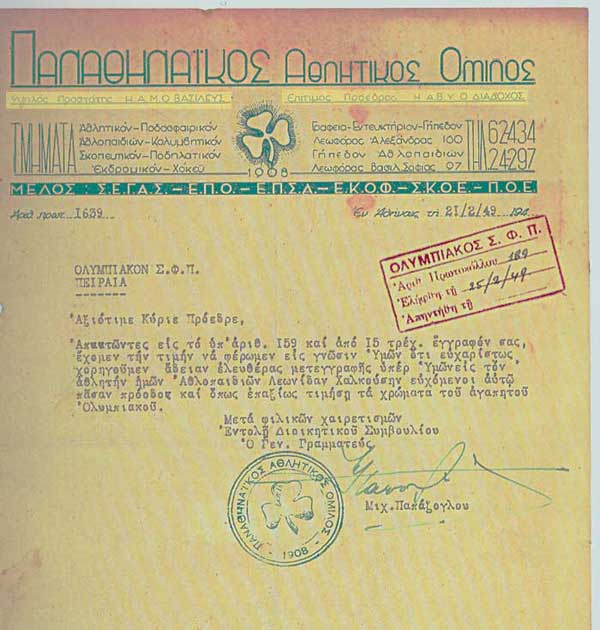 ΠΑΝΑΘΗΝΑΪΚΟΣ ΑΘΛΗΤΙΚΟΣ ΟΜΙΛΟΣ
Υψηλός Προστάτης Η Α.Μ.Ο ΒΑΣΙΛΕΥΣ
Επίτιμος Πρόεδρος Η Α.Β.Υ. Ο ΔΙΑΔΟΧΟΣ
ΤΜΗΜΑΤΑ
Αθλητικόν-Ποδοσφαιρικόν
Αθλοπαιδιών-Κολυμβητικόν
Σκοπευτικόν-Ποδηλατικόν
Έκδρομικόν-Χόκεϋ
1908
Γραφεία-Εντευκτήριον-Γήπεδον
Λεωφόρος Αλεξάνδρας 160
Γήπεδον Αθλοπαιδιών
Λεωφόρος Βασιλ. Σοφίας 97
ΤΗΛ 62434
24297
ΜΕΛΟΣ : Σ.Ε.Γ.Α.Σ. - Ε.Π.Ο - Ε.Π.Σ.Α - Ε.Κ.Ο.Φ - Σ.Κ.Ο.Ε. - Π.Ο.Ε.
Αριθ πρωτ. 1639
Εν Αθήναις τη 21/2/49 194
ΟΛΥΜΠΙΑΚΟΝ Σ.Φ.Π.
ΠΕΙΡΑΙΑ
-------
ΟΛΥΜΠΙΑΚΟΣ Σ. Φ. Π.
Άριθ Πρωτοκόλλου 189
Έλήφθη τῇ 25/2/49
Απηντήθη τῇ
Ἀξιότιμε Κύριε Πρόεδρε,
Απαντῶντες εἰς τό ὑπ' ἀριθ. 159 καί ἀπό 15 τρέχ. ἔγγραφόν σας,
ἔχομεν τήν τιμήν νά φέρωμεν εἰς γνῶσιν Ὑμῶν ὅτι εὐχαρίστως
χορηγοῦμεν ἄδειαν ἐλευθέρας μετεγγραφῆς ὑπέρ Ὑμῶν εἰς τόν
ἀθλητήν ἡμῶν Ἀθλοπαιδιῶν Λεωνίδαν Χαλκούσην εὐχόμενοι αὐτῷ
πᾶσαν πρόοδον καί ὅπως ἐπαξίως τιμήσῃ τά χρώματα τοῦ ἀγαπητοῦ
Ὀλυμπιακοῦ.
Μετά φιλικῶν χαιρετισμῶν
Ἐντολῇ Διοικητικοῦ Συμβουλίου
Ὁ Γεν. Γραμματεύς
ΠΑΝΑΘΗΝΑΪΚΟΣ ΑΘΛΗΤΙΚΟΣ ΟΜΙΛΟΣ
1908
Μιχ. Παπάζογλου